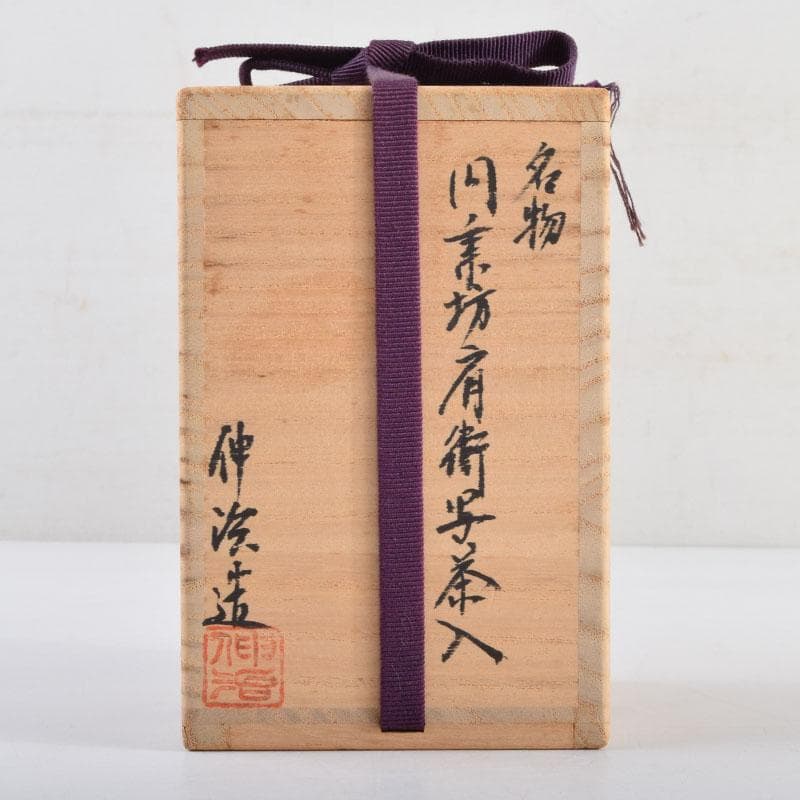 名物
円乗坊肩衝写茶入
伸治造
伸治